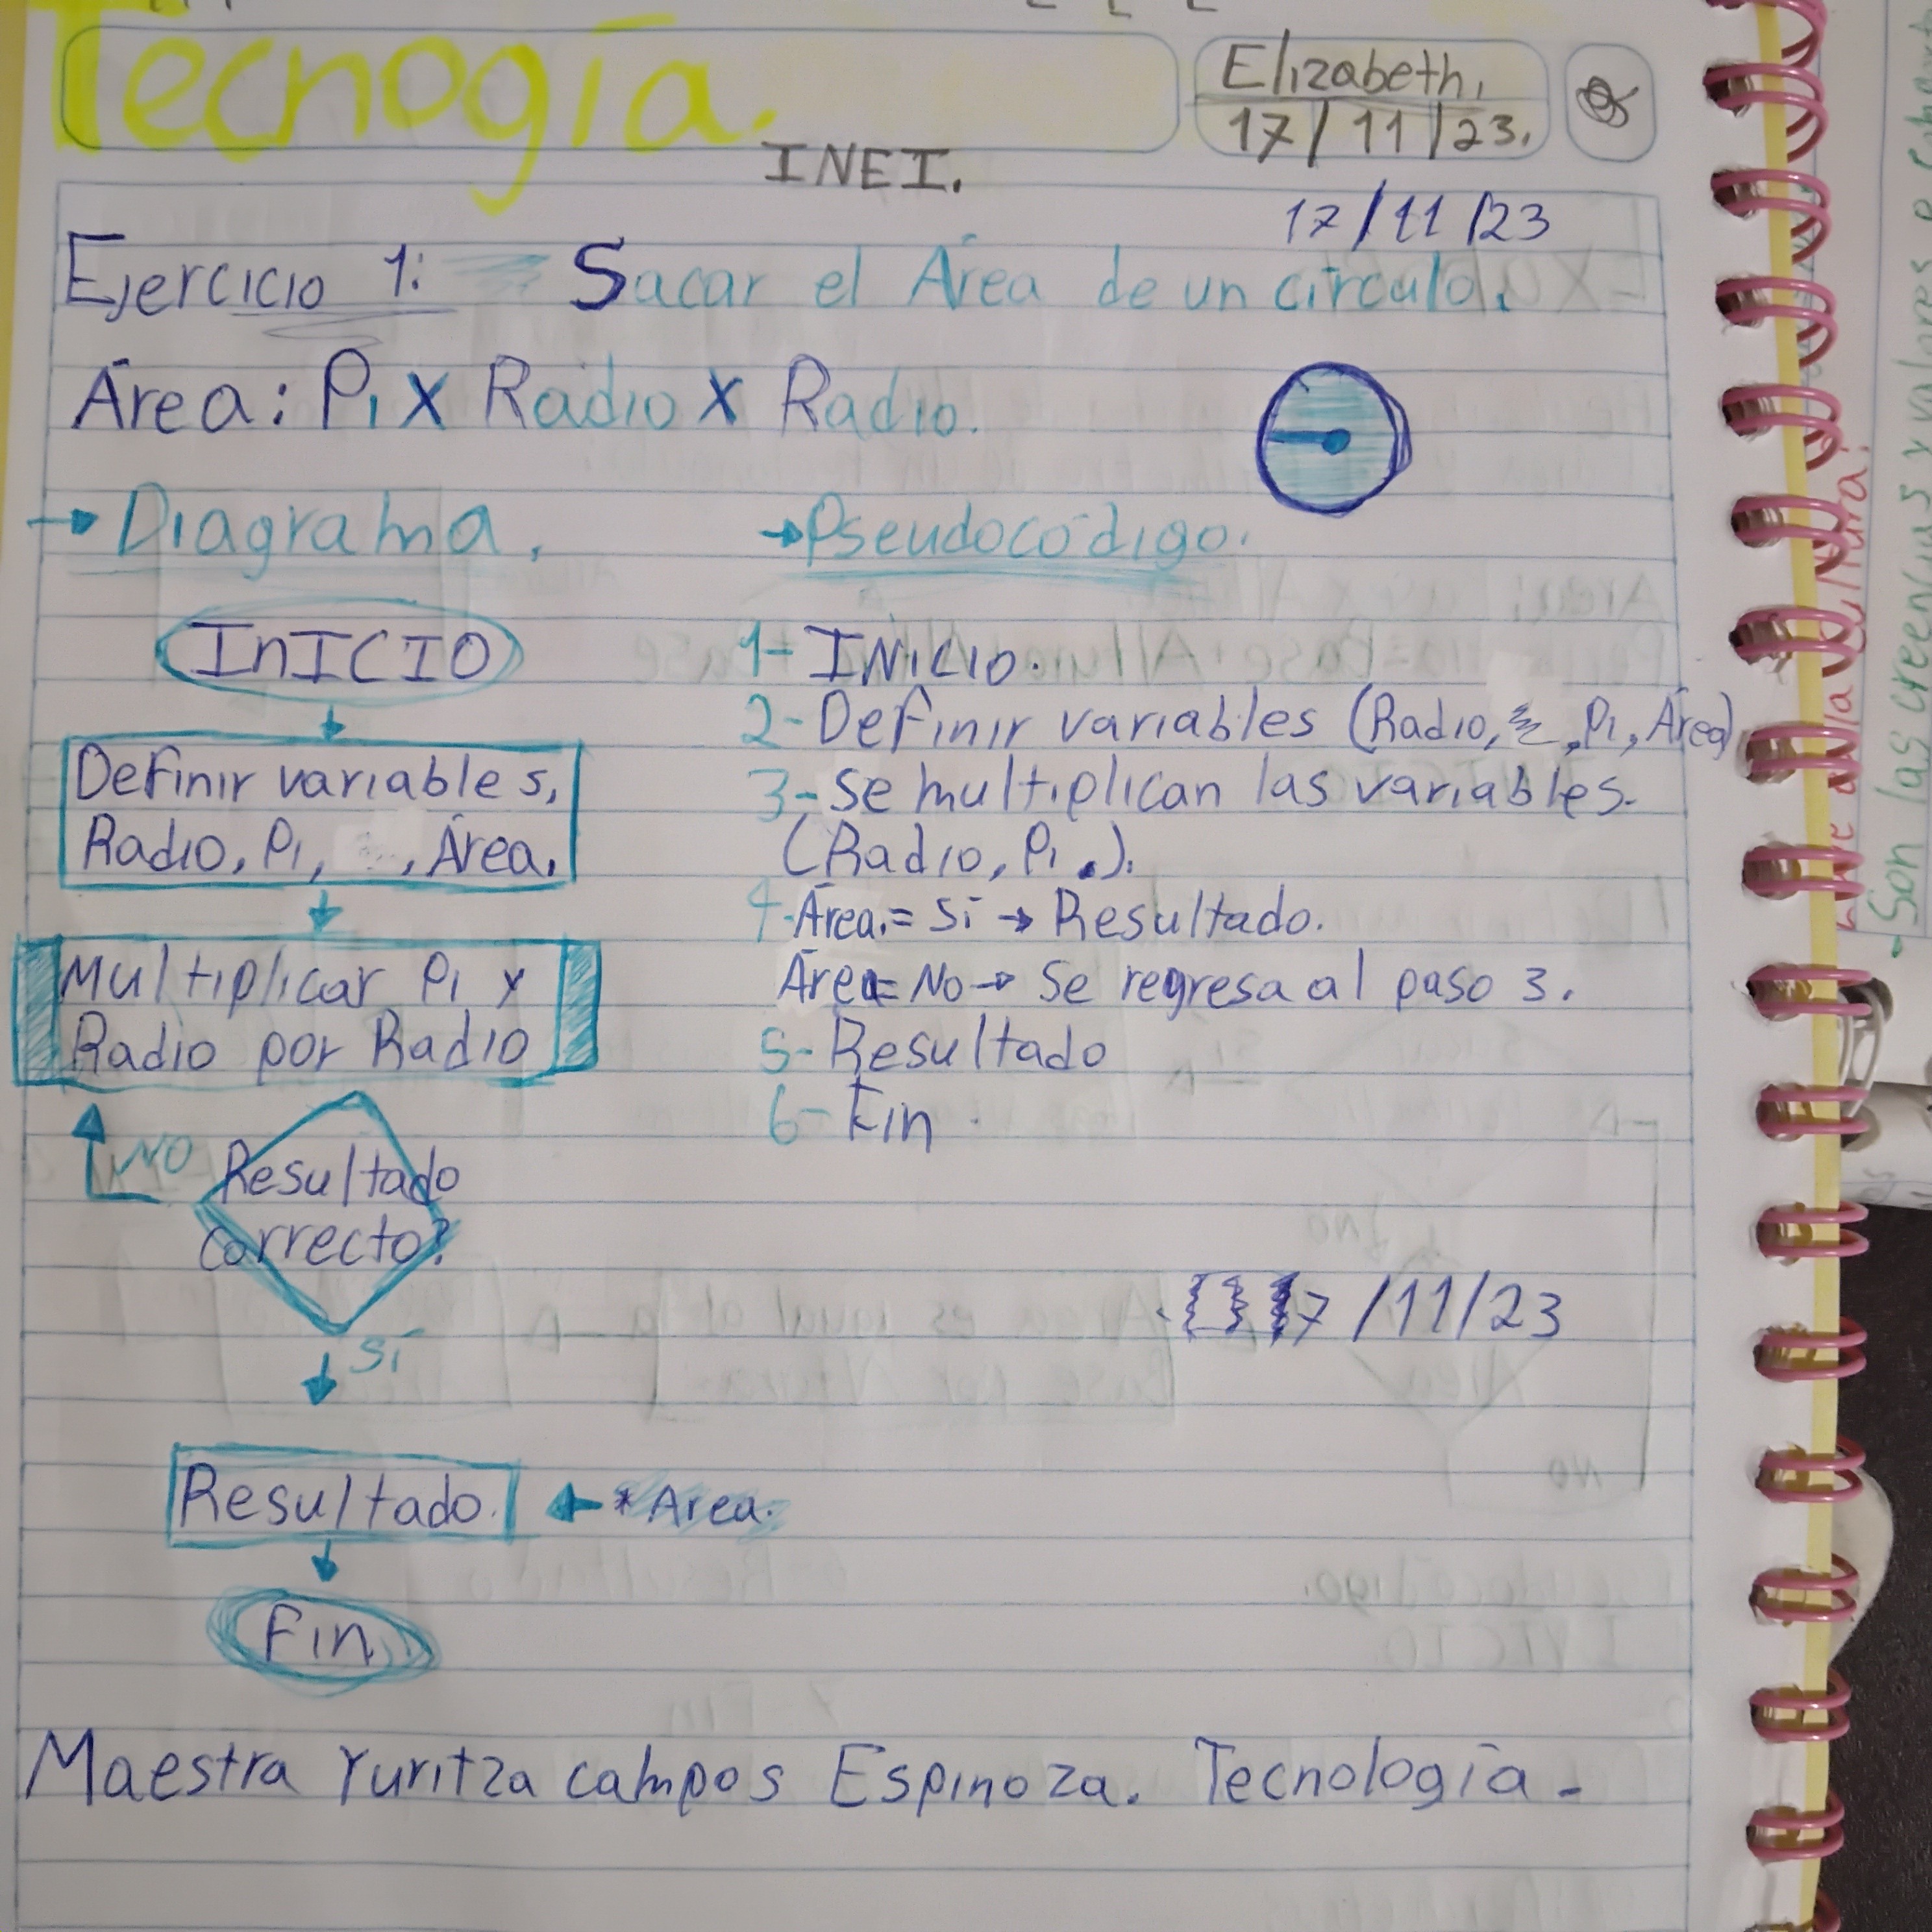 Tecnogía.
Elizabeth.
17/11/23.
INEI.
17/11/23
Ejercicio 1: Sacar el Área de un círculo.
Área: Pi x Radio x Radio.
→ Diagrama.
INICIO
Definir variables,
Radio, Pi, , Área.
Multiplicar Pi x
Radio por Radio
NO
Resultado
correcto?
Sí
Resultado. ← * Area.
Fin
→ Pseudocódigo.
1- INICIO.
2- Definir variables (Radio, , Pi, Área)
3- Se multiplican las variables.
(Radio, Pi.).
4- Área.= Sí → Resultado.
Área= No → Se regresa al paso 3.
5- Resultado
6- Fin.
7/11/23
Maestra Yuritza campos Espinoza. Tecnología.
Son las creencias y valores